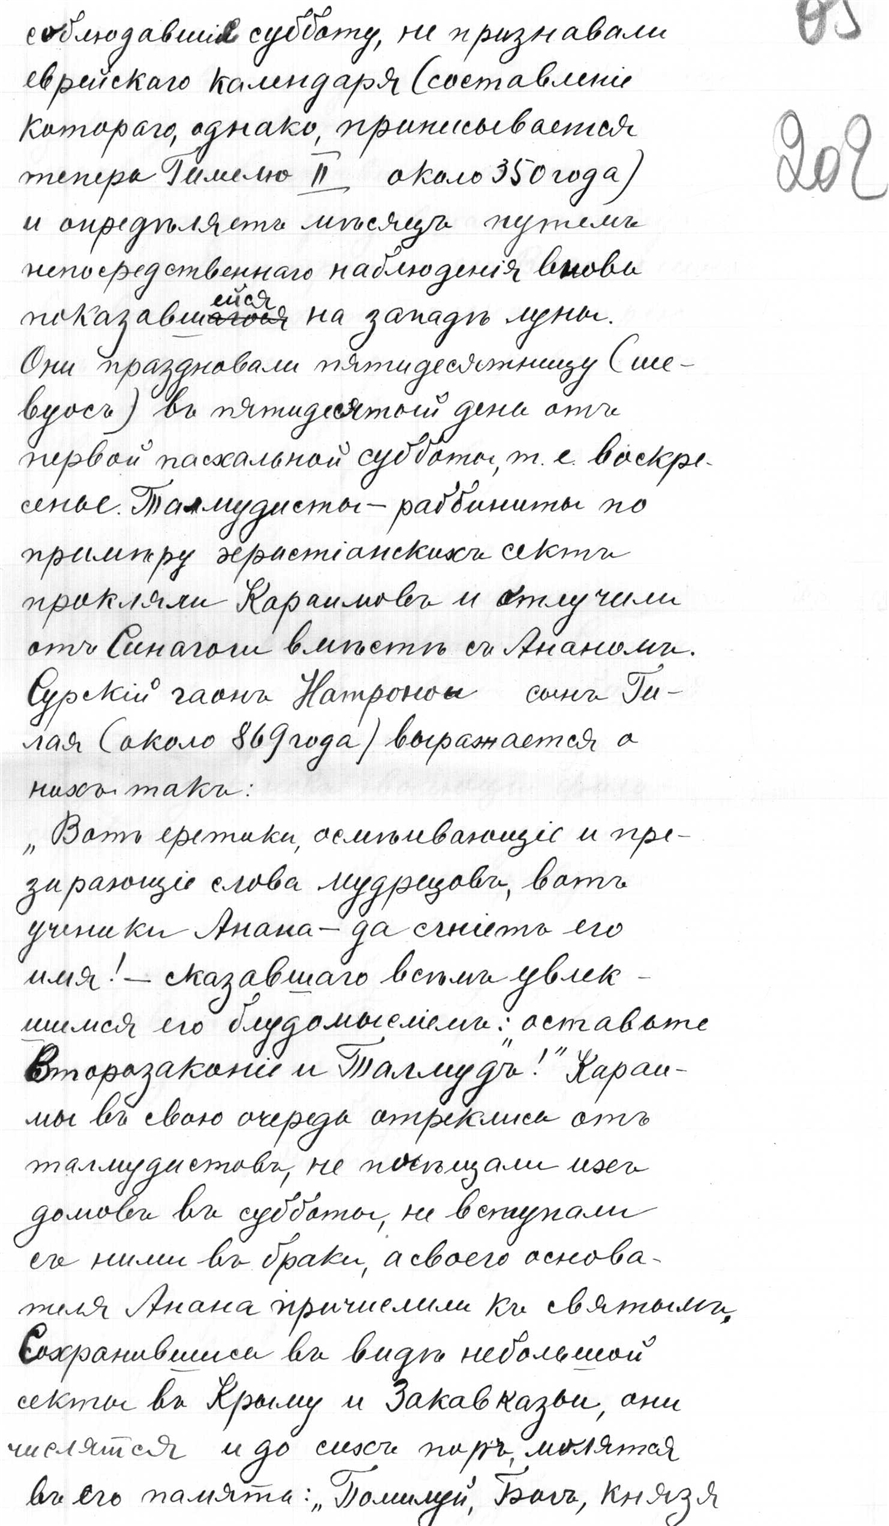 202
соблюдавшіе субботу, не признавали
еврейскаго календаря (составленіе
котораго, однако, приписывается
теперь Гилелю II около 350 года)
и опредѣляетъ мѣсяцъ путемъ
непосредственнаго наблюденія вновь
показавшейся на западѣ луны.
Они праздновали пятидесятницу (ше-
вуосъ) въ пятидесятой день отъ
первой пасхальной субботы, т. е. воскре-
сенье. Талмудисты – раббиниты по
примѣру христіанскихъ сектъ
прокляли Караимовъ и отлучили
отъ Синагоги вмѣстѣ съ Ананомъ.
Сурскій гаонъ Натронаи сынъ Ги-
лая (около 869 года) выражается о
нихъ такъ:
„Вотъ еретики, осмѣивающіе и пре-
зирающіе слова мудрецовъ, вотъ
ученики Анана – да сгніетъ его
имя! – сказавшаго всѣмъ увлек-
шимся его блудомысліемъ: оставьте
Второзаконіе и Талмудъ!" Караи-
мы въ свою очередь отреклись отъ
талмудистовъ, не посѣщали ихъ
домовъ въ субботы, не вступали
съ ними въ браки, а своего основа-
теля Анана причислили къ святымъ.
Сохранившись въ видѣ небольшой
секты въ Крыму и Закавказьи, они
числятся и до сихъ поръ, молятся
въ его память: „Помилуй, Богъ, князя